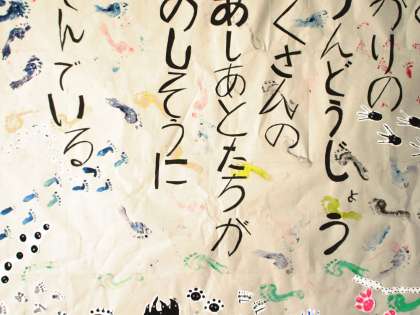 がりの
うんどうじょう
くさんの
あしあとたちが
のしそうに
んでいる